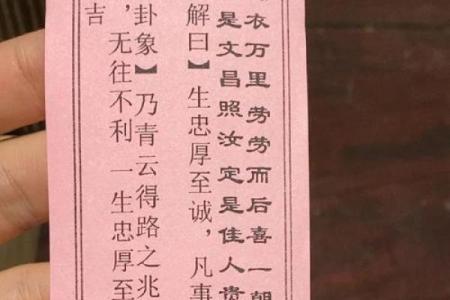 衣万里劳劳而后喜一朝
是文昌照汝定是佳人贵
解曰】生忠厚至诚，凡事
卦象】乃青云得路之兆
，无往不利一生忠厚至
吉